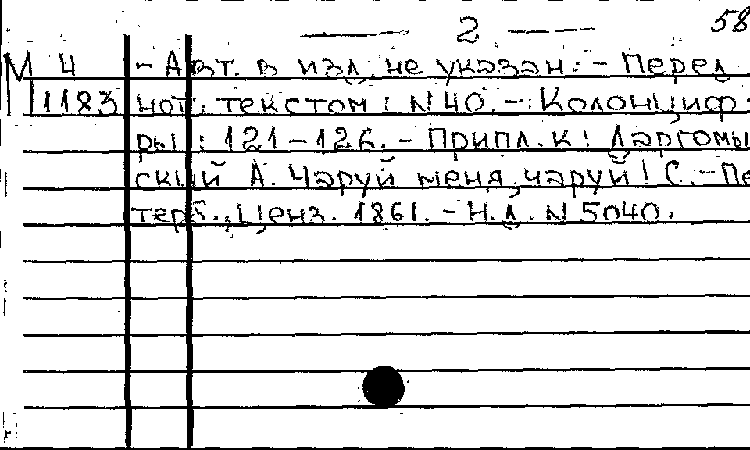 — 2 — 58
М 4 - Авт. в изд. не указан. - Перед
1183 нот. текстом: N 40. - Колонциф-
ры: 121-126. - Припл. к: Даргомы
ский А. Чаруй меня, чаруй! С.-Пе
терб., Ценз. 1861. - Н.д. N 5040.